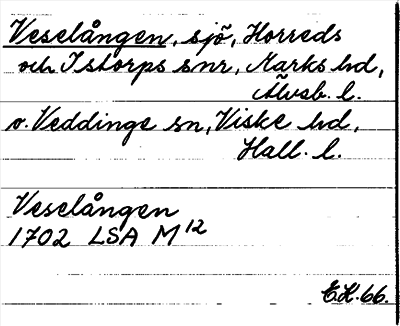 Veselången, sjö, Horreds
och Istorps snr, Marks hd,
Älvsb. l.
o. Veddinge sn, Viske hd,
Hall. l.
Veselången
1702 LSA M12
E.H. 66.